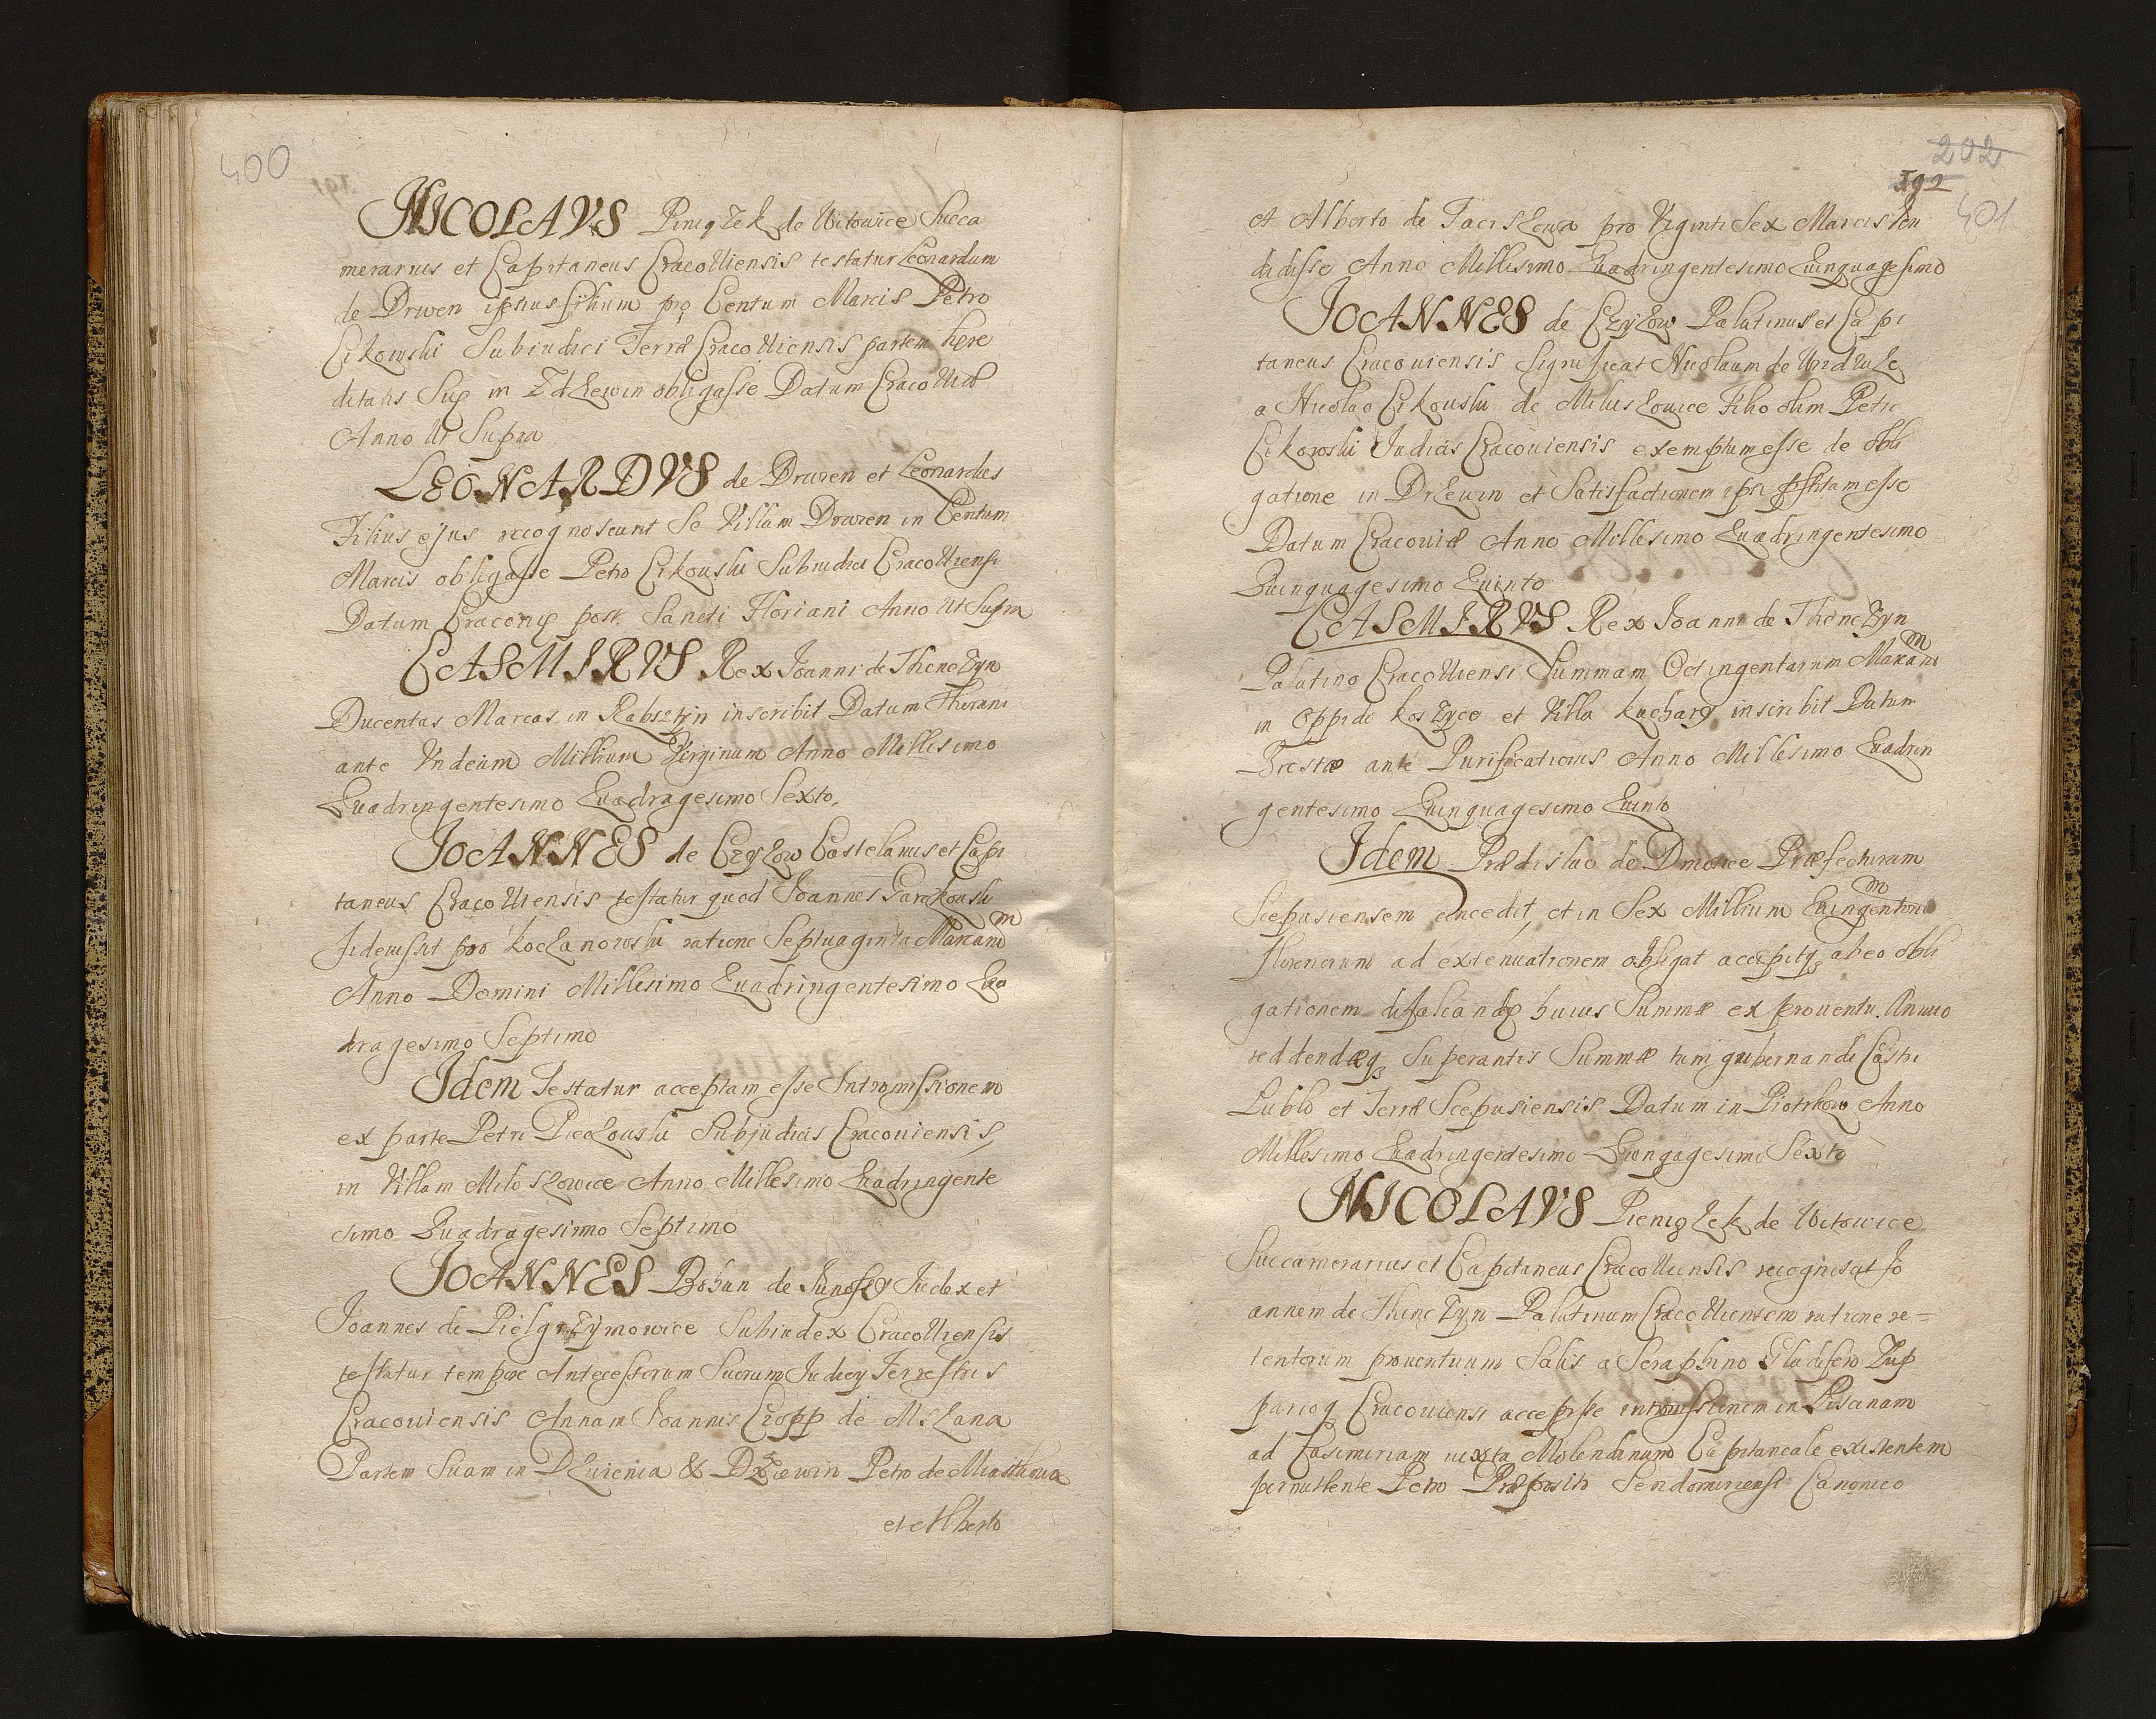 400
NICOLAVS Pieniążek de Witowice Succa
merarius et Capitaneus Cracoviensis testatur Leonardum
de Drwen ipsius filium pro Centum Marcis Petro
Cikowski Subiudici Terræ Cracoviensis partem here
ditatis Suę in obligasse Datum Cracoviæ
Anno Ut Supra
LEONARDVS de Drwen et Leonardus
Filius ejus recognoscunt Se Villam Drwen in Centum
Marcis obligasse Petro Cikouski Subiudici Cracoviensi
Datum Cracovię post Sancti Floriani Anno Ut Supra
CASMIRVS Rex Joanni de Thenczyn
Ducentas Marcas in Rabsztÿn inscribit Datum Thorani
ante Vndecim Millium Virginum Anno Millesimo
Quadringentesimo Quadragesimo Sexto,
JOANNES de Czyżow Castelanus et Capi
taneus Cracoviensis testatur quod Joannes
Fideiussit pro ratione Septuaginta Marcarum
Anno Domini Millesimo Quadringentesimo Qua
dragesimo Septimo
Idem Testatur acceptam esse Intromissionem
ex parte Petri Subjudicis Cracoviensis,
in Villam Milosżowice Anno Millesimo Quadringente
simo Quadragesimo Septimo
JOANNES Bohun de Index et
Joannes de Pielgrzÿmowice Subiudex Cracoviensis
testatur tempore Antecessorum Suorum Terrestris
Cracoviensis Annam Joannis Czopp de Mszana
Partem Suam in & Petro de
et Alberto
202
192
401
et Alberto de pro Viginti Sex Marcis Ven
didisse Anno Millesimo Quadringentesimo Quinquagesimo
JOANNES de Czyżow Palatinus et Capi
taneus Cracouiensis Significat Nicolaum de
a Nicolao Cikouski de Milusżowice filio olim Petri
Cikowski Judicis Cracouiensis exemptum esse de obli
gatione in Drżewin et Satisfactionem ipsi esse
Datum Cracouiæ Anno Millesimo Quadringentesimo
Quinquagesimo Quinto
CASMIRVS Rex Joanni de Thenczyn
Palatino Cracoviensi Summam Octingentarum Marcarum
in Oppido Koszyce et Villa Kuchary inscribit Datum
Brestæ ante Purificationis Anno Millesimo Quadrin
gentesimo Quinquagesimo Quinto
Idem Prædislao de Dmowice Præfecturam
Scepusiensem concedit, et in Sex Millium Quingentorum
florenorum ad extenuationem obligat accepitq3 ab eo obli
gationem defalcandę huius Summæ ex prouentu Annuo
reddendæq3 Superantis Summæ tum gubernandi Castri
Lublo et Terræ Scepusiensis Datum in Piotrkow Anno
Millesimo Quadringentesimo Sexto
NICOLAVS Pieniążek de Witowice
Succamerarius et Capitaneus Cracoviensis recognoscit Jo
annem de Thenczyn Palatinum Cracoviensem ratione re=
tentorum prouentuum Salis a Seraphino Gladifero Zup
Cracouiensi accepisse intromissionem in Piscinam
ad Casimiriam iuxta Molendinum Capitaneale existentem
permittente Petro Præposito Sendomiriensi Canonico